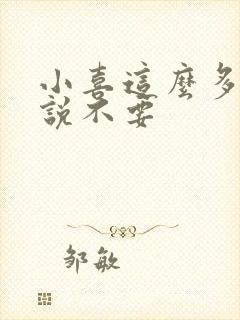 小喜這麼多
說不要
邹敏